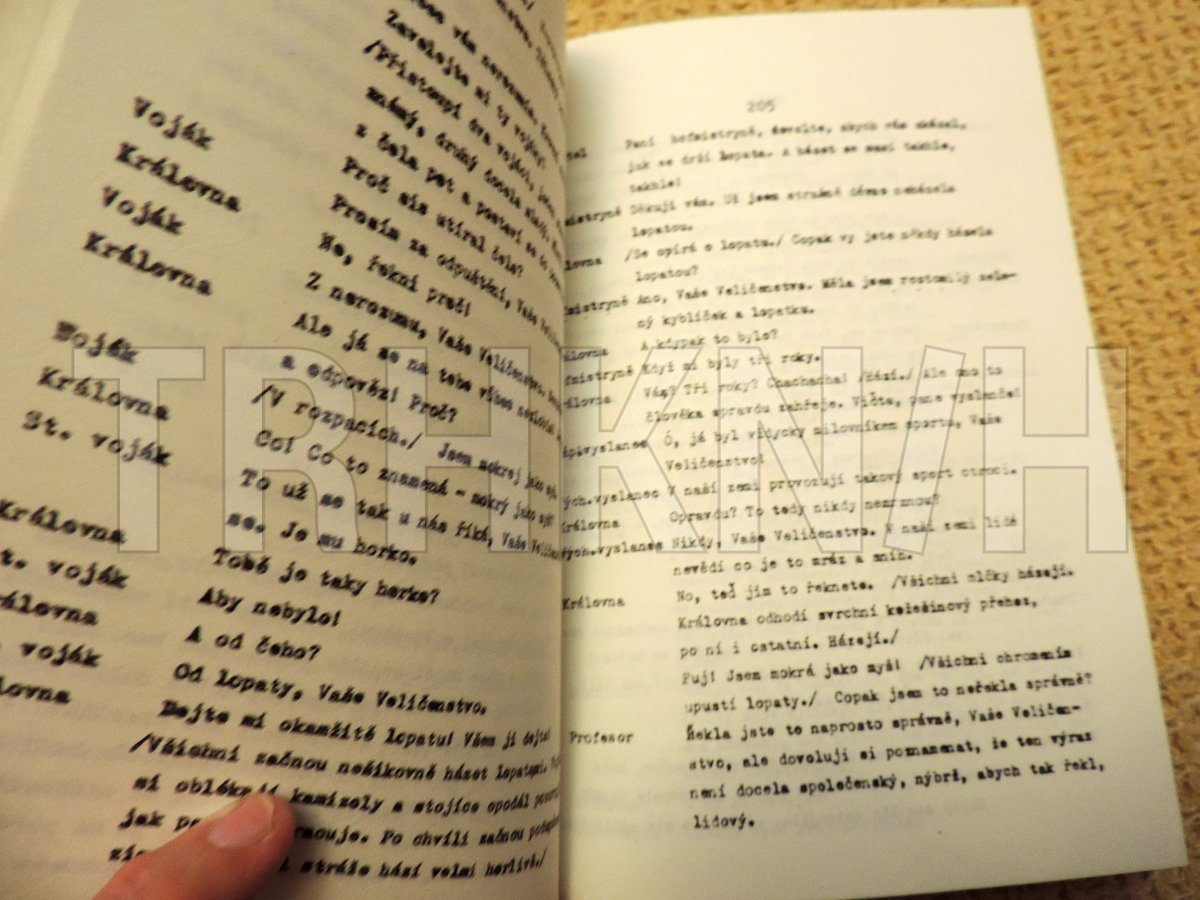 vám nerozumím.
Zavolejte mi ty vojáky!
/Přistoupí dva vojáci, jeden
známý, druhý docela
z čela pot a postaví se do
Voják Proč sis utíral čelo?
Královna Prosím za odpuštění, Vaše
Voják Ne, řekni proč!
Královna Z nerozumu, Vaše Veličenstvo.
Ale já se na tebe vůbec
a odpověz! Proč?
Voják /V rozpacích./ Jsem mokrej jako myš.
Královna Co! Co to znamená - mokrý jako myš?
St. voják To už se tak u nás říká, Vaše
se. Je mu horko.
Královna Tobě je taky horko?
t. voják Aby nebylo!
álovna A od čeho?
voják Od lopaty, Vaše Veličenstvo.
lovna Dejte mi okamžitě lopatu! Všem ji dejte!
/Všichni začnou nešikovně házet lopatami.
si oblékají kamizoly a stojíce opodál
jak Po chvíli začnou
stráže hází velmi horlivě./
205
tel Paní hofmistryně, dovolte, abych vám ukázal,
jak se drží lopata. A házet se musí takhle,
takhle!
mistryně Děkuji vám. Už jsem strašně dávno neházela
lopatou.
lovna /Se opírá o lopatu./ Copak vy jste někdy házela
lopatou?
mistryně Ano, Vaše Veličenstvo. Měla jsem roztomilý zele-
ný kyblíček a lopatku.
álovna A kdypak to bylo?
fmistryně Když mi byly tři roky.
álovna Vám? Tři roky? Chachacha! /Hází./ Ale ono to
člověka opravdu zahřeje. Viďte, pane vyslanče!
vyslanec Ó, já byl vždycky milovníkem sportu, Vaše
Veličenstvo!
ých.vyslanec V naší zemi provozují takový sport otroci.
Královna Opravdu? To tedy nikdy nezmrznou?
ých.vyslanec Nikdy, Vaše Veličenstvo. V naší zemi lidé
nevědí co je to mráz a sníh.
Královna No, teď jim to řeknete. /Všichni mlčky házejí.
Královna odhodí svrchní kožešinový přehoz,
po ní i ostatní. Házejí./
Fuj! Jsem mokrá jako myš! /Všichni ohromením
upustí lopaty./ Copak jsem to neřekla správně?
Profesor Řekla jste to naprosto správně, Vaše Veličen-
stvo, ale dovoluji si poznamenat, že ten výraz
není docela společenský, nýbrž, abych tak řekl,
lidový.
TRHKNIH